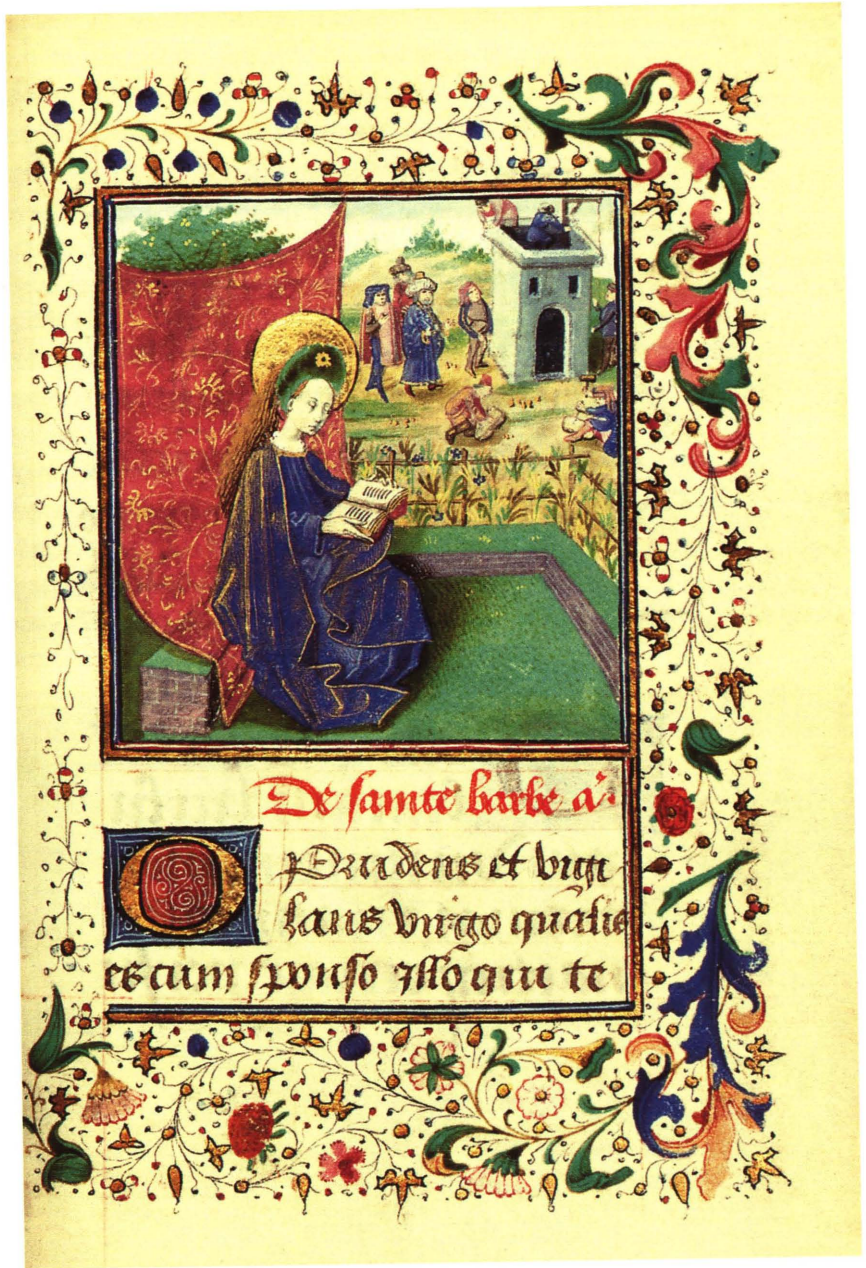 De sainte barbe aͬ.
O Prudens et vigi
lans virgo qualis
es cum sponso illo qui te